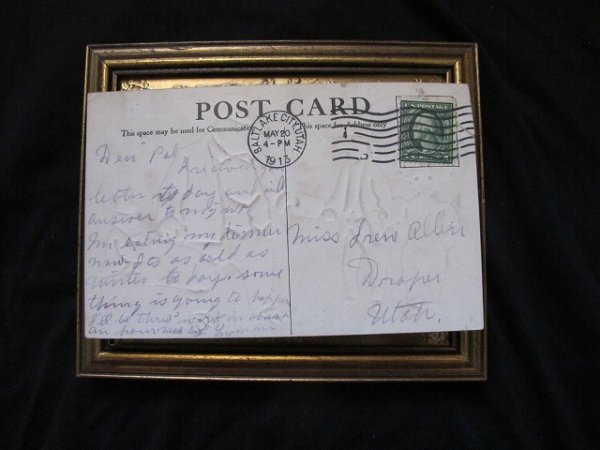 POST CARD
This space may be used for Communication
This space for Address only
SALT LAKE CITY, UTAH
MAY 20
4-PM
1913
U.S. POSTAGE
Dear Pal
I received
letter to day and will
answer to night
Im eating my dinner
now Its as cold as
winter to day. some
thing is going to happen
I'll be thru work in about
an hour
Miss Irene Allen
Draper
Utah.